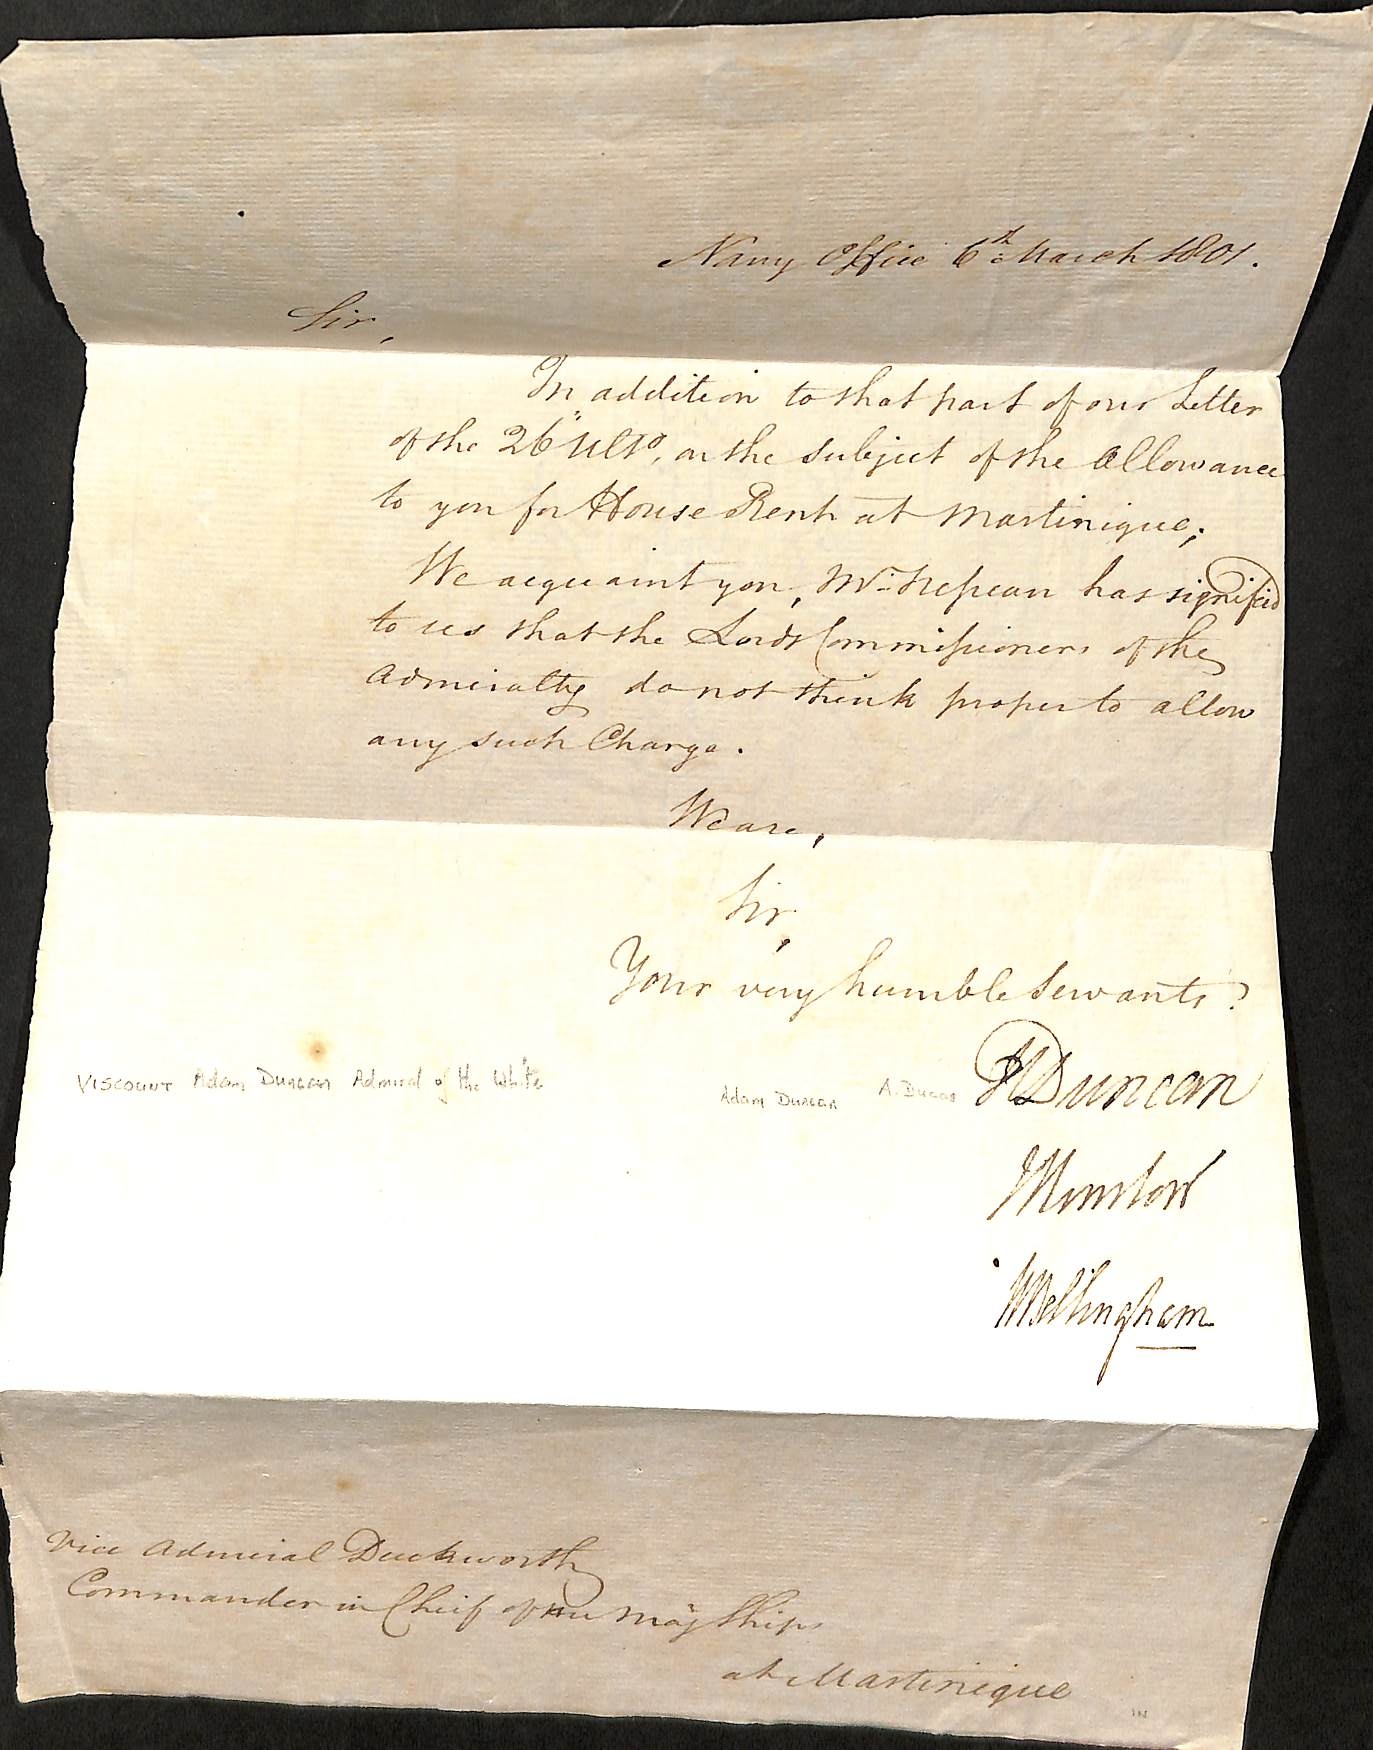 Navy Office 6th March 1801.
Sir,
In addition to that part of our Letter
of the 26" Ulto, on the subject of the Allowance
to you for House Rent at Martinique;
We acquaint you, Mr. Nepean has signified
to us that the Lords Commissioners of the
Admiralty do not think proper to allow
any such Charge.
We are,
Sir,
Your very humble Servants,
VISCOUNT Adam Duncan Admiral of the White
Adam Duncan
Duncan
WBellingham
Vice Admiral Duckworth
Commander in Cheif of His Maj Ships
at Martinique